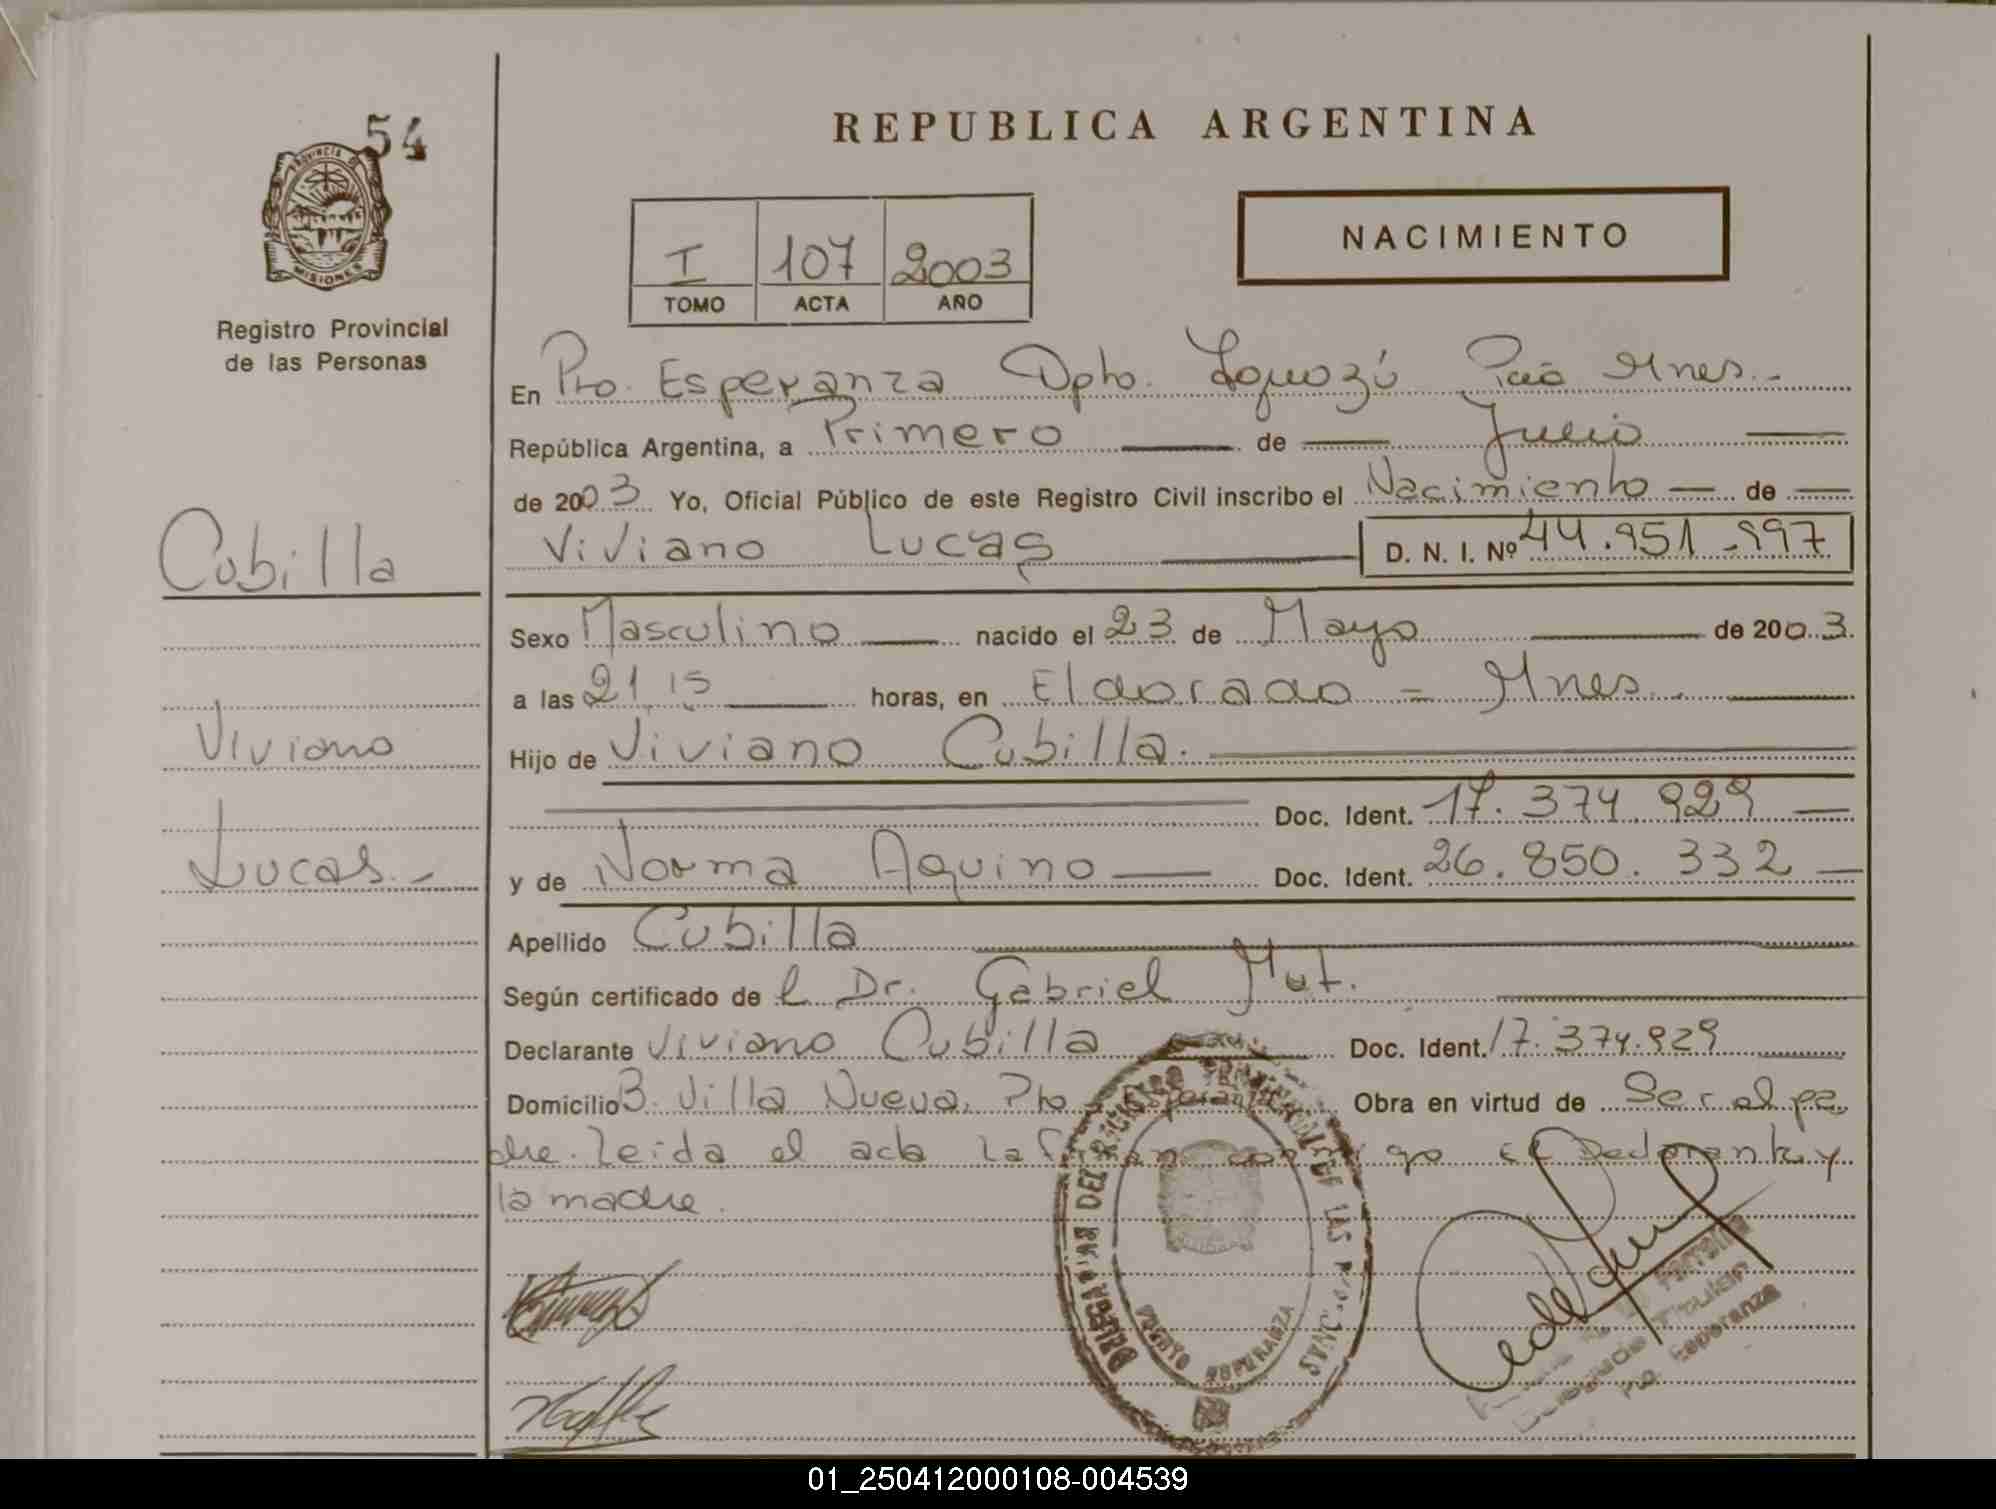 54
PROVINCIA DE
MISIONES
Registro Provincial
de las Personas
REPUBLICA ARGENTINA
I 107 2003
TOMO ACTA AÑO
NACIMIENTO
En Pto. Esperanza Dpto. Iguazú Pcia Mnes.
República Argentina, a Primero de Julio
de 2003 Yo, Oficial Público de este Registro Civil inscribo el Nacimiento de
Viviano Lucas D. N. I. Nº 44.951.997
Cubilla
Viviano
Lucas.-
Sexo Masculino nacido el 23 de Mayo de 2003.
a las 21 15 horas, en Eldorado = Mnes.
Hijo de Viviano Cubilla.
Doc. Ident. 17.374.929
y de Norma Aquino Doc. Ident. 26.850.332
Apellido Cubilla
Según certificado de l Dr. Gabriel Mut.
Declarante Viviano Cubilla Doc. Ident. 17.374.929
Domicilio B. Villa Nueva. Pto Esperanza Obra en virtud de Ser el pa
dre. Leida el acta la firman conmigo el Declarante y
la madre.
DELEGACIAS DEL REGISTRO PROVINCIAL DE LAS PERSONAS
PUERTO ESPERANZA
Delegado Titular
Pto. Esperanza
01_250412000108-004539